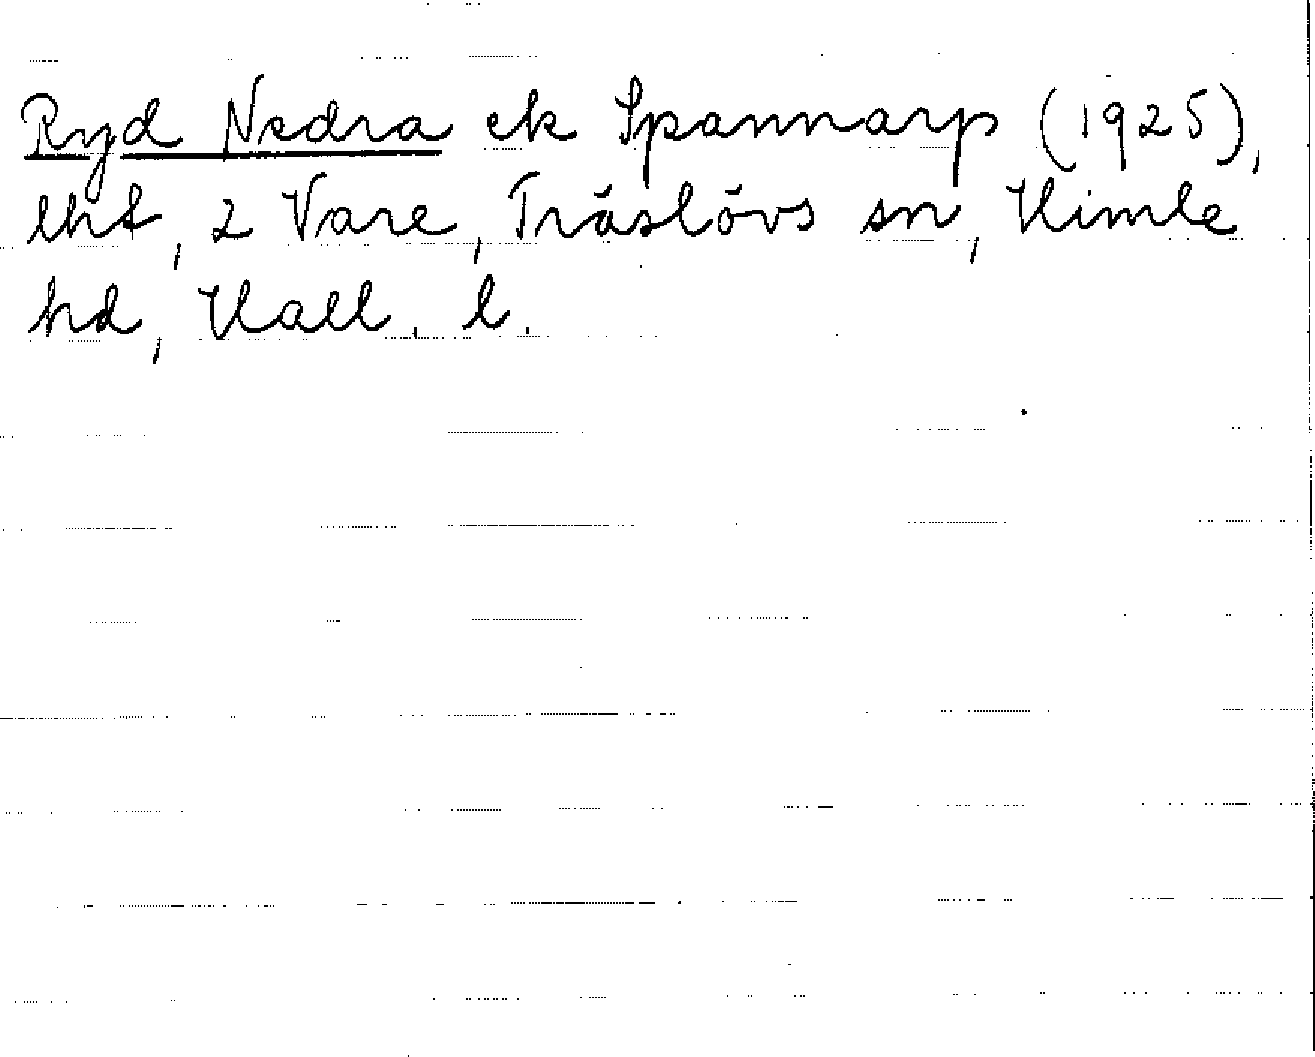 Ryd Nedra ek Spannarp (1925),
lht, 2 Vare, Träslövs sn, Himle
hd, Hall. l.